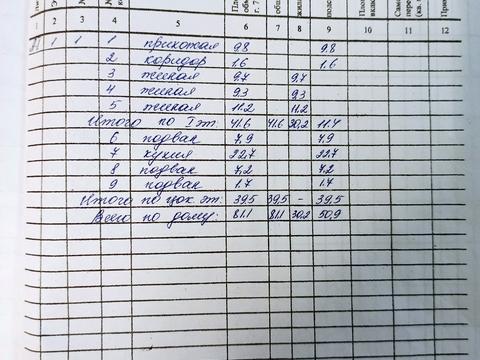 1 2 3 4 5 6 7 8 9 10 11 12
А 1 1 1 прихожая 9.8 9.8
2 коридор 1.6 1.6
3 жилая 9.7 9.7
4 жилая 9.3 9.3
5 жилая 11.2 11.2
Итого по I эт: 41.6 41.6 30,2 11.4
6 подвал 7,9 7.9
7 кухня 22.7 22.7
8 подвал 7,2 7.2
9 подвал 1.7 1.7
Итого по цок. эт: 39,5 39,5 - 39,5
Всего по дому: 81.1 81.1 30.2 50,9